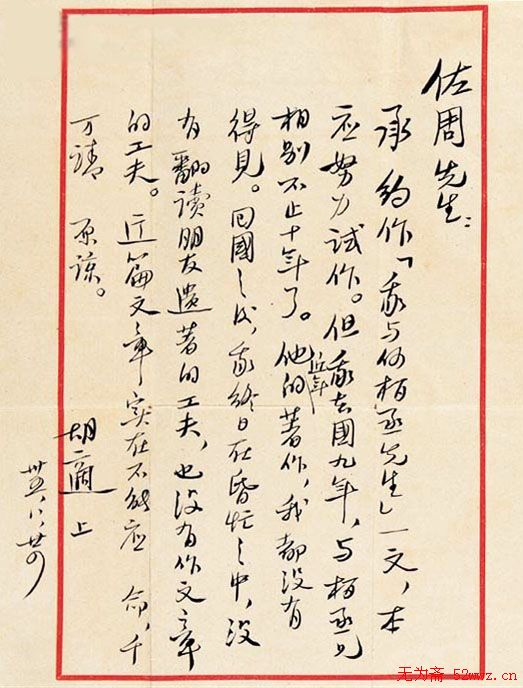 佐周先生：
承 約作「我与何柏丞先生」一文，本
应努力試作。但我去國九年，与柏丞兄
相别不止十年了。他的近年著作，我都没有
得見。回國之後，我終日在昏忙之中，没
有翻读朋友遗著的工夫，也没有作文章
的工夫。这篇文章实在不能应 命，千
万請 原諒。
胡適 上
卅五，八，廿四
无为斋-52wwz.cn